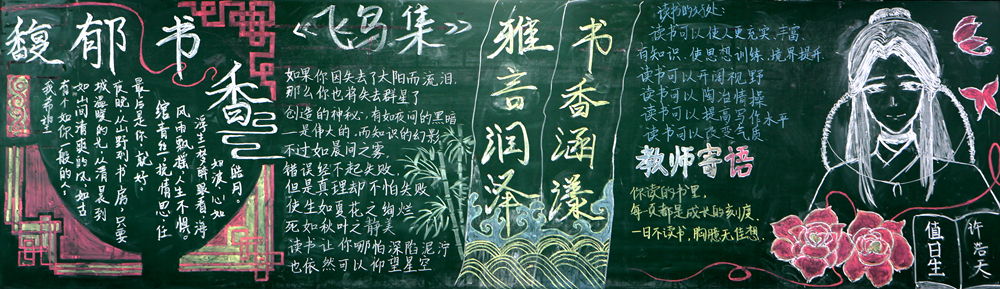 馥郁书香
我希望
有个如你一般的人:
如山间清爽的风,如古
城温暖的光。从清晨到
夜晚从山野到书房,只要
最后是你,就好
绾青丝,挽情思,任
风雨飘摇人生不惧。
浮生一梦醉眼看,海
如波,心如
皓月。
《飞鸟集》
如果你因失去了太阳而流泪,
那么你也将失去群星了
创造的神秘,有如夜间的黑暗
一是伟大的,而知识的幻影
不过如晨间之雾
错误经不起失败,
但是真理却不怕失败
使生如夏花之绚烂
死如秋叶之静美
读书让你哪怕深陷泥泞
也依然可以仰望星空
书香涵漾
雅言润泽
读书的好处:
读书可以使人更充实,丰富
有知识,使思想训练,境界提升
读书可以开阔视野
读书可以陶冶情操
读书可以提高写作水平
读书可以改变气质
教师寄语
你读的书里,
每一页都是成长的刻度
一日不读书,胸臆无佳想.
值日生
许浩天